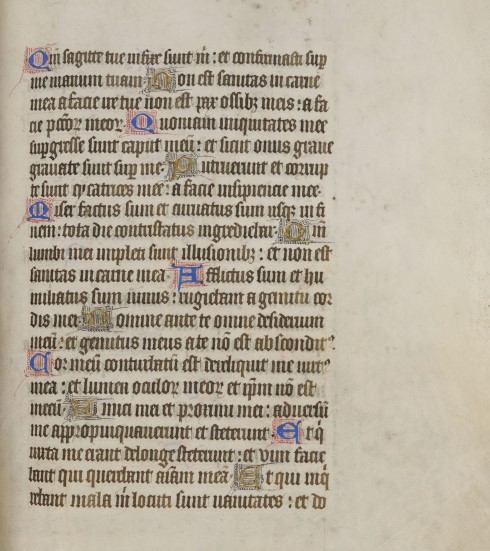 Qm̄ sagitte tue infixe sunt m̄: et confirmasti sup
me manum tuam. Non est sanitas in carne
mea a facie ire tue non est pax ossibꝫ meis: a fa
cie pctōꝝ meoꝝ. Quoniam iniquitates mee
supgresse sunt caput meū: et sicut onus graue
grauate sunt sup me. Putruerunt et corrup
te sunt cycatrices mee: a facie insipiencie mee.
Miser factus sum et curuatus sum usqꝫ in fi
nem: tota die contristatus ingrediebar. Qm̄
lumbi mei impleti sunt illusionibꝫ: et non est
sanitas in carne mea. Afflictus sum et hu
miliatus sum nimis: rugiebam a gemitu cor
dis mei. Domine ante te omne desiderium
meū: et gemitus meus a te nō est absconditꝰ.
Cor meū conturbatū est dereliquit me uirtꝰ
mea: et lumen oculoꝝ meoꝝ et ip̄m nō est
mecū. Amici mei et proximi mei: aduersū
me appropinquauerunt et steterunt. Et q̄
iuxta me erant de longe steterunt: et uim facie
bant qui querebant aīam meā. Et qui inq̄
rebant mala m̄ locuti sunt uanitates: et do